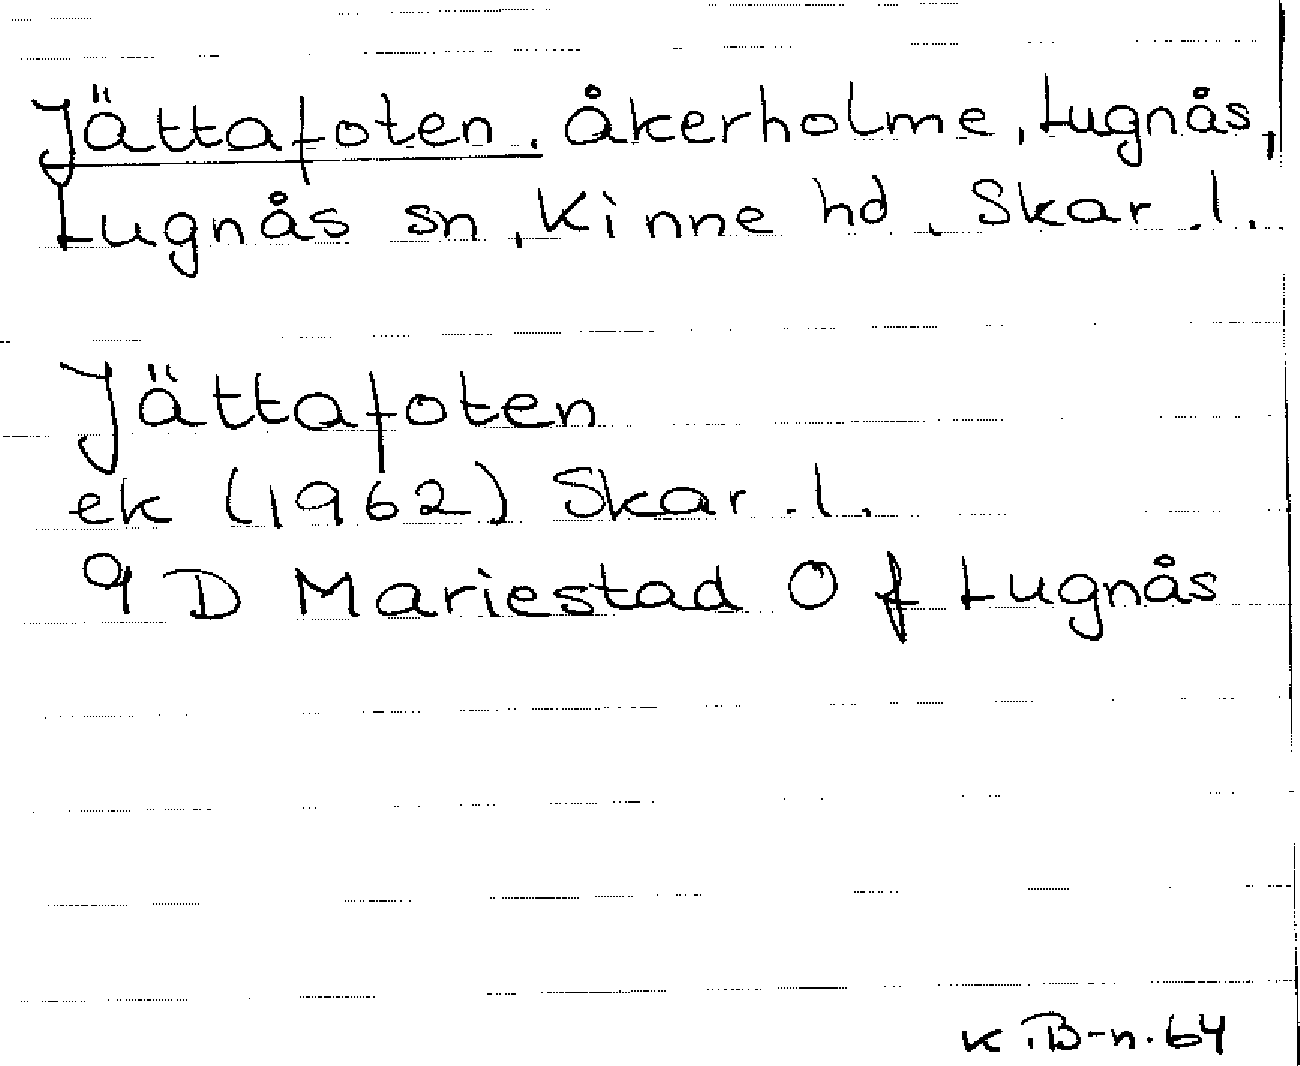 Jättafoten. Åkerholme, Lugnås,
Lugnås sn, Kinne hd, Skar.l.
Jättafoten
ek (1962) Skar.l.
9 D Mariestad 0 f Lugnås
K.B-n.64